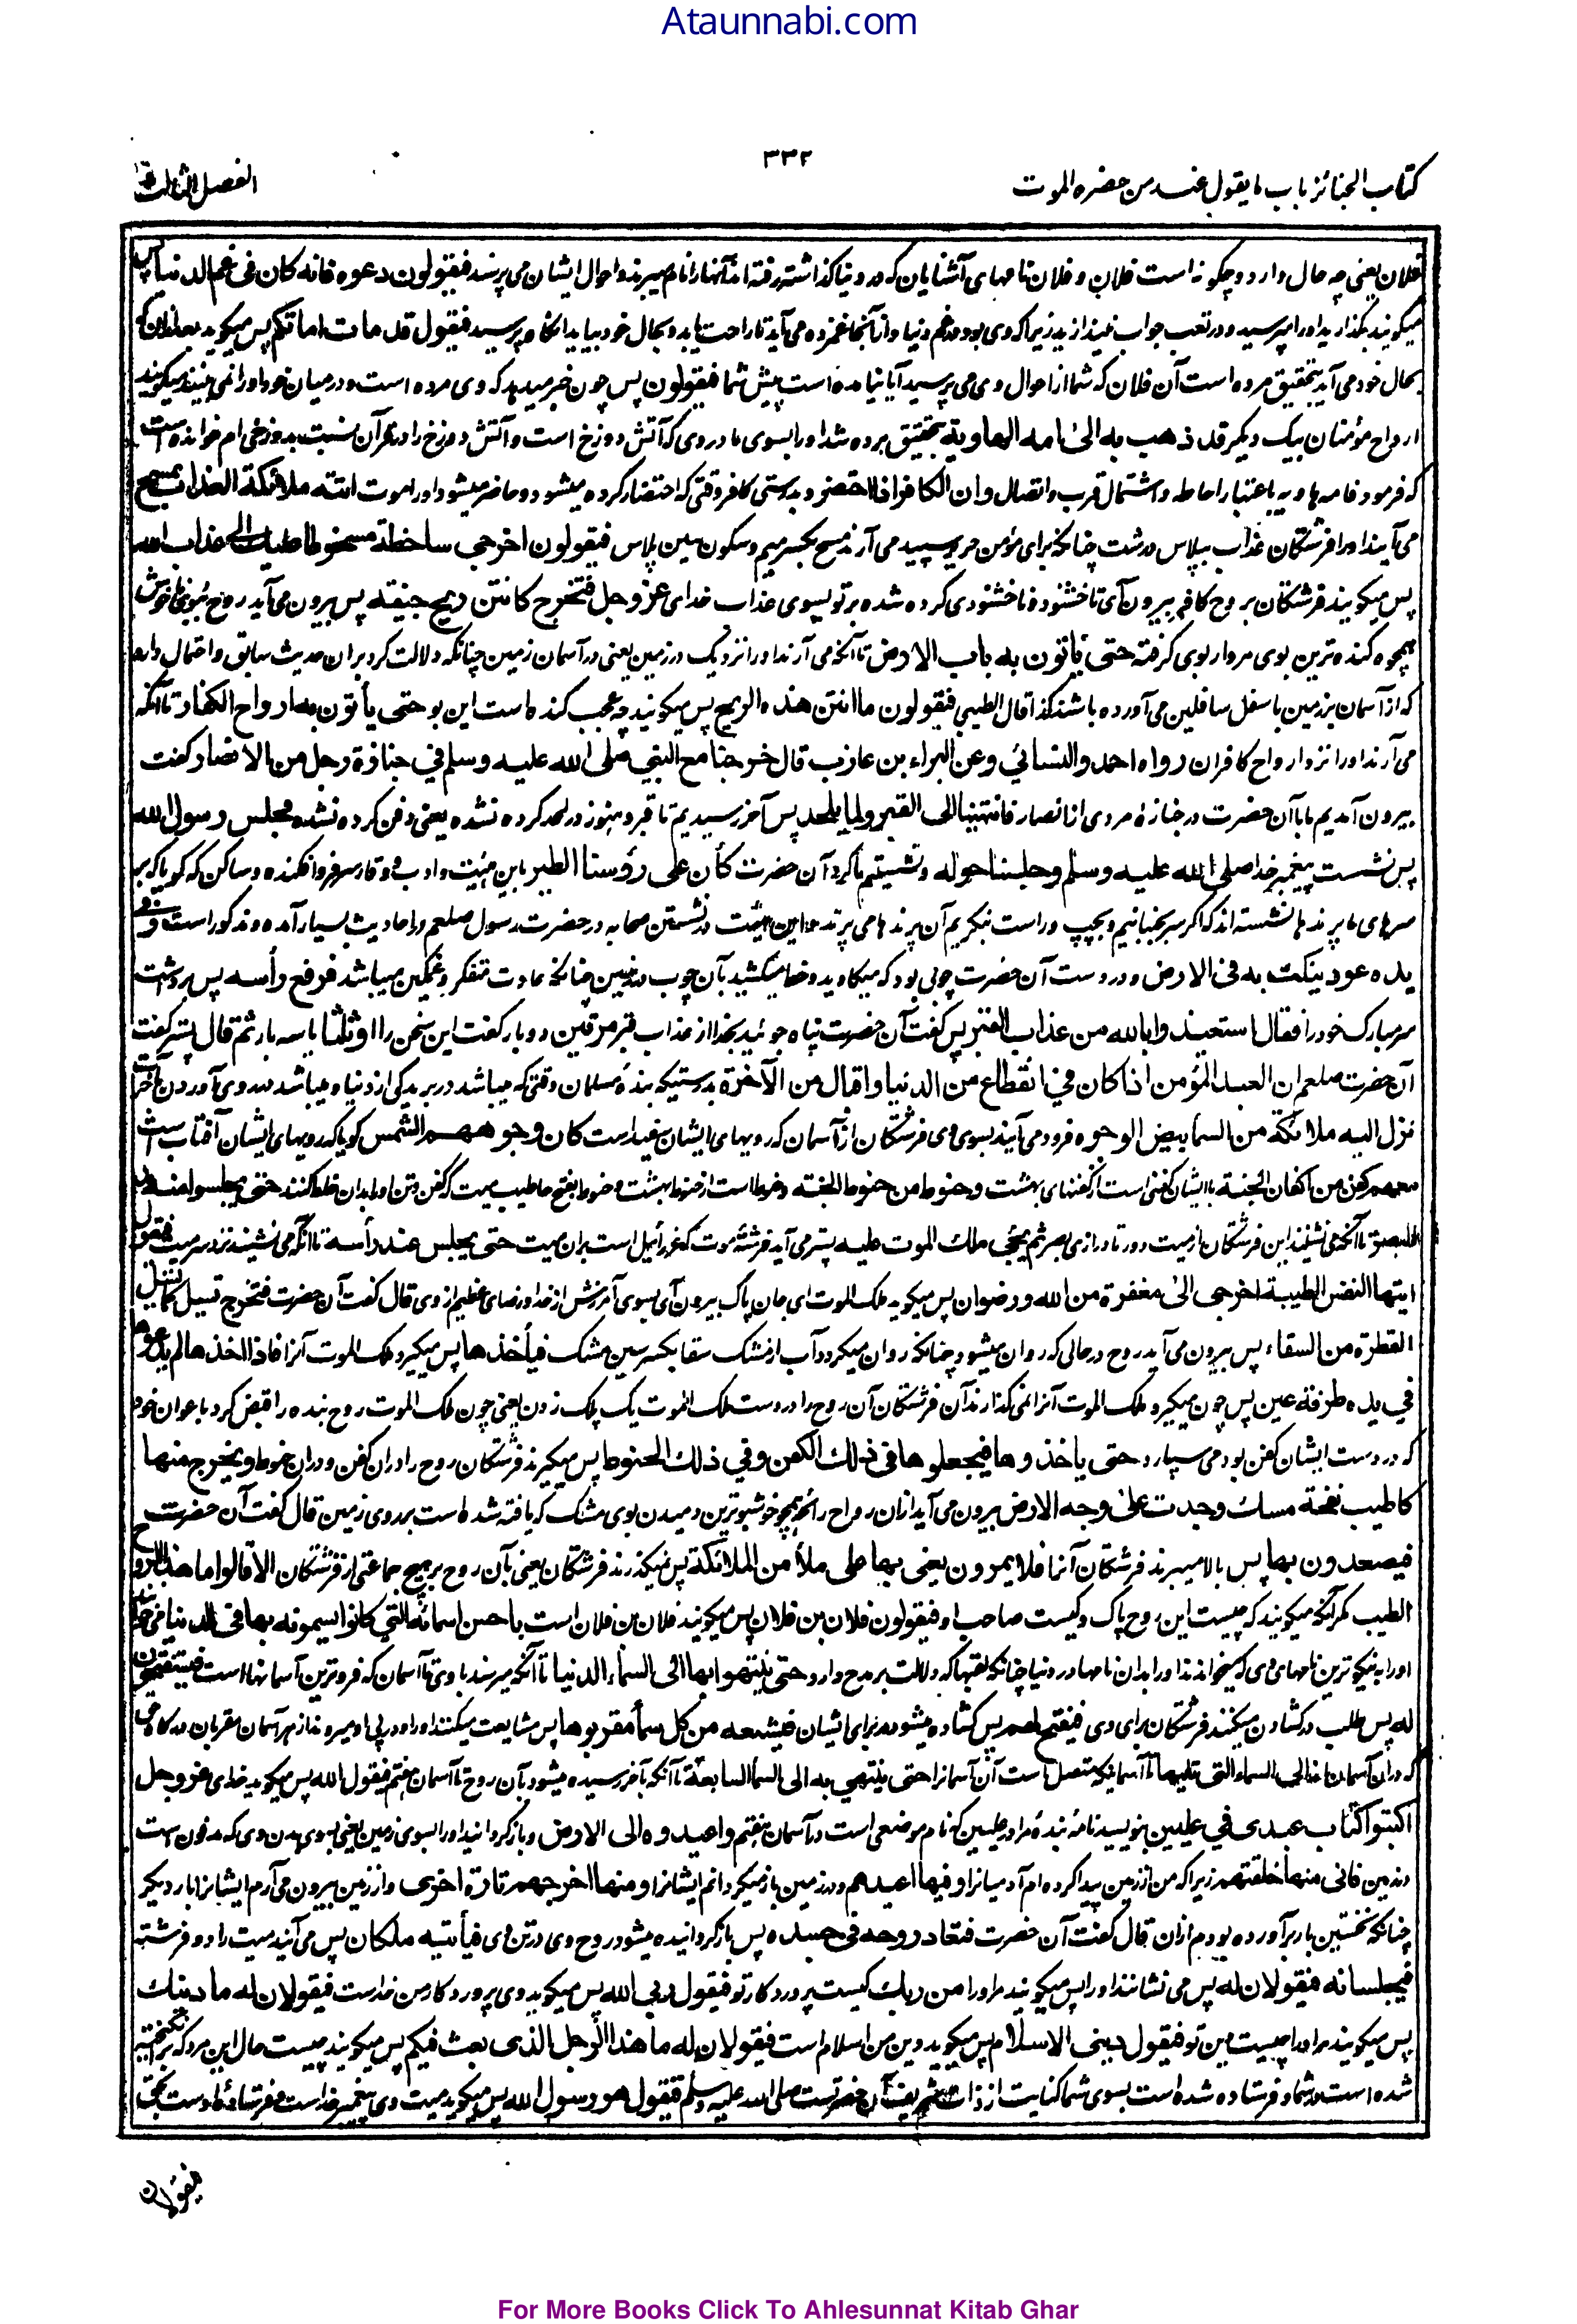 Ataunnabi.com
۳۳۲
کتاب الجنائز باب ما یقول عند من حضره الموت
الفصل الثالث
فلان یعنی چه حال دارد و چگونه است فلان و فلان نامهای آشنایان که در دنیا گذاشته رفته اند آنها را نام میبرند و احوال ایشان می پرسند فیقولون دعوه فانه کان فی غم الدنیا پس
میگویند بگذارید او را مپرسید و در تعب جواب میندازید زیرا که وی بود در غم دنیا و از آنجا غمزده می آید تا راحت یابد و بحال خود بیاید انگاه بپرسید فیقول قد مات اما اتکم پس میگوید بعد از آن که
بحال خود می آید بتحقیق مرده است آن فلان که شما از احوال وی می پرسید آیا نیامده است پیش شما فیقولون پس چون خبر میدهد که وی مرده است و در میان خود او را نمی بینند میگویند
ارواح مؤمنان بیک دیگر قد ذهب به الی امه الهاویة بتحقیق برده شد او را بسوی مادر وی که آتش دوزخ است و آتش دوزخ را در قرآن نسبت بدوزخی ام خوانده است
که فرمود فامه هاویه باعتبار احاطه و اشتمال قرب و اتصال وان الکافر اذا احتضر و بدرستی کافر وقتی که احتضار کرده میشود و حاضر میشود او را موت اتته ملائکة العذاب بمسح
می آیند او را فرشتگان عذاب بپلاس درشت چنانکه برای مؤمن حریر سپید می آرند مسح بکسر میم و سکون سین پلاس فیقولون اخرجی ساخطة مسخوطا علیک الی عذاب الله
پس میگویند فرشتگان بروح کافر بیرون آی ناخشنود و ناخشنودی کرده شده بر تو بسوی عذاب خدای عز و جل فتخرج کانتن ریح جیفة پس بیرون می آید روح ببوی ناخوش
همچو گنده ترین بوی مردار بوی گرفته حتی یاتون به باب الارض تا آنکه می آرند او را نزدیک در زمین یعنی در آسمان زمین چنانکه دلالت کرد بر ان حدیث سابق و احتمال دارد
که از آسمان بزمین باسفل سافلین می آورده باشند کذا قال الطیبی فیقولون ما انتن هذه الریح پس میگویند چه عجب گنده است این بو حتی یأتون به ارواح الکفار تا آنکه
می آرند او را نزد ارواح کافران رواه احمد والنسائی وعن البراء بن عازب قال خرجنا مع النبی صلی الله علیه وسلم فی جنازة رجل من الانصار گفت
بیرون آمدیم ما با آن حضرت در جنازهٔ مردی از انصار فانتهینا الی القبر ولما یلحد پس آخر رسیدیم تا قبر و هنوز در لحد کرده نشده یعنی دفن کرده نشده فجلس رسول الله
پس نشست پیغمبر خدا صلی الله علیه وسلم وجلسنا حوله و نشستیم ما گرد آن حضرت کأن علی رؤسنا الطیر باین هیئت و ادب و وقار سر فرو افکنده و ساکن که گویا که بر
سرهای ما پرندها نشسته اند که اگر سر بجنبانیم و بچپ و راست بنگریم آن پرندها می پرند و این هیئت در نشستن صحابه در حضرت رسول صلعم در احادیث بسیار آمده و مذکور است وفی
یده عود ینکت به فی الارض و در دست آن حضرت چوبی بود که میکاوید و خط میکشید بآن چوب در زمین چنانکه عادت متفکر و غمگین میباشد فرفع رأسه پس برداشت
سر مبارک خود را فقال استعیذوا بالله من عذاب القبر پس گفت آن حضرت پناه جوئید بخدا از عذاب قبر مرتین دو بار گفت این سخن را او ثلثا یا سه بار ثم قال پستر گفت
آن حضرت صلعم ان العبد المؤمن اذا کان فی انقطاع من الدنیا واقبال من الآخرة بدرستیکه بندهٔ مسلمان وقتی که میباشد در بریدگی از دنیا و میباشد در روی آوردن بآخرت
نزل الیه ملائکة من السماء بیض الوجوه فرود می آیند بسوی وی فرشتگان از آسمان که رویهای ایشان سفید است کان وجوههم الشمس گویا که رویهای ایشان آفتاب است
معهم کفن من اکفان الجنة با ایشان کفنی است از کفنهای بهشت وحنوط من حنوط الجنة و حنوط است از حنوط بهشت و حنوط بفتح حا طیب میت که کفن و تن او را بدان خلط کنند حتی یجلسوا منه مد
البصر تا آنکه می نشینند این فرشتگان از میت دور تا درازی بصر ثم یجیٔ ملک الموت علیه پستر می آید فرشتهٔ موت که عزرائیل است بران میت حتی یجلس عند رأسه تا آنکه می نشیند نزد سر میت فیقول
ایتها النفس الطیبة اخرجی الی مغفرة من الله ورضوان پس میگوید ملک الموت ای جان پاک بیرون آی بسوی آمرزش از خدا و رضای عظیم از وی قال گفت آن حضرت فتخرج تسیل کما تسیل
القطرة من السقاء پس بیرون می آید روح در حالی که روان میشود چنانکه روان میگردد آب از مشک سقا بکسر سین مشک فیأخذها پس میگیرد ملک الموت آنرا فاذا اخذها لم یدعوها
فی یده طرفة عین پس چون میگیرد ملک الموت آنرا نمی گذارند آن فرشتگان آن روح را در دست ملک الموت یک پلک زدن یعنی چون ملک الموت روح بنده را قبض کرد باعوان خود
که در دست ایشان کفن بود می سپارد حتی یاخذوها فیجعلوها فی ذلک الکفن وفی ذلک الحنوط پس میگیرند فرشتگان روح را در ان کفن و در ان حنوط ویخرج منها
کاطیب نفحة مسک وجدت علی وجه الارض بیرون می آید ازان روح رائحه همچو خوشبوترین دمیدن بوی مشک که یافته شده است بر روی زمین قال گفت آن حضرت
فیصعدون بها پس بالا میبرند فرشتگان آنرا فلا یمرون یعنی بها علی ملأ من الملائکة پس نمیگذرند فرشتگان یعنی بآن روح بر هیچ جماعتی از فرشتگان الا قالوا ما هذا الروح
الطیب مگر آنکه میگویند که چیست این روح پاک و کیست صاحب او فیقولون فلان بن فلان پس میگویند فلان بن فلان است باحسن اسمائه التی کانوا یسمونه بها فی الدنیا
او را به نیکوترین نامهای وی که میخواندند او را بدان نامها در دنیا چنانکه لقبها که دلالت بر مدح دارد حتی ینتهوا بها الی السماء الدنیا تا آنکه میرسند با وی تا آسمان که فروترین آسمانها است فیستفتحون
له پس طلب در کشادن میکنند فرشتگان برای وی فیفتح لهم پس کشاده میشود در برای ایشان فیشیعه من کل سماء مقربوها پس مشایعت میکنند او را و در پی او میروند از هر آسمان مقربان درگاه حق
که دران آسمان اند الی السماء التی تلیها تا آسمانیکه متصل است آن آسمان را حتی ینتهی به الی السماء السابعة تا آنکه بآخر رسیده میشود بآن روح تا آسمان هفتم فیقول الله پس میگوید خدای عز و جل
اکتبوا کتاب عبدی فی علیین بنویسید نامهٔ بندهٔ مرا در علیین که نام موضعی است در آسمان هفتم واعیدوه الی الارض و باز گردانید او را بسوی زمین یعنی بسوی بدن وی که مدفون است
در زمین فانی منها خلقتهم زیرا که من از زمین پیدا کرده ام آدمیان را وفیها اعیدهم و در زمین باز میگردانم ایشانرا ومنها اخرجهم تارة اخری و از زمین بیرون می آرم ایشانرا بار دیگر
چنانکه نخستین بار برآورده بودم ازان قال گفت آن حضرت فتعاد روحه فی جسده پس باز گردانیده میشود روح وی در تن وی فیأتیه ملکان پس می آیند میت را دو فرشته
فیجلسانه فیقولان له پس می نشانند او را پس میگویند مر او را من ربک کیست پروردگار تو فیقول ربی الله پس میگوید وی پروردگار من خداست فیقولان له ما دینک
پس میگویند مر او را چیست دین تو فیقول دینی الاسلام پس میگوید دین من اسلام است فیقولان له ما هذا الرجل الذی بعث فیکم پس میگویند چیست حال این مرد که برانگیخته
شده است در شما و فرستاده شده است بسوی شما کنایت از ذات شریف آن حضرتست صلی الله علیه وسلم فیقول هو رسول الله پس میگوید میت وی پیغمبر خداست و فرستادهٔ اوست بحق
فیقولان
For More Books Click To Ahlesunnat Kitab Ghar